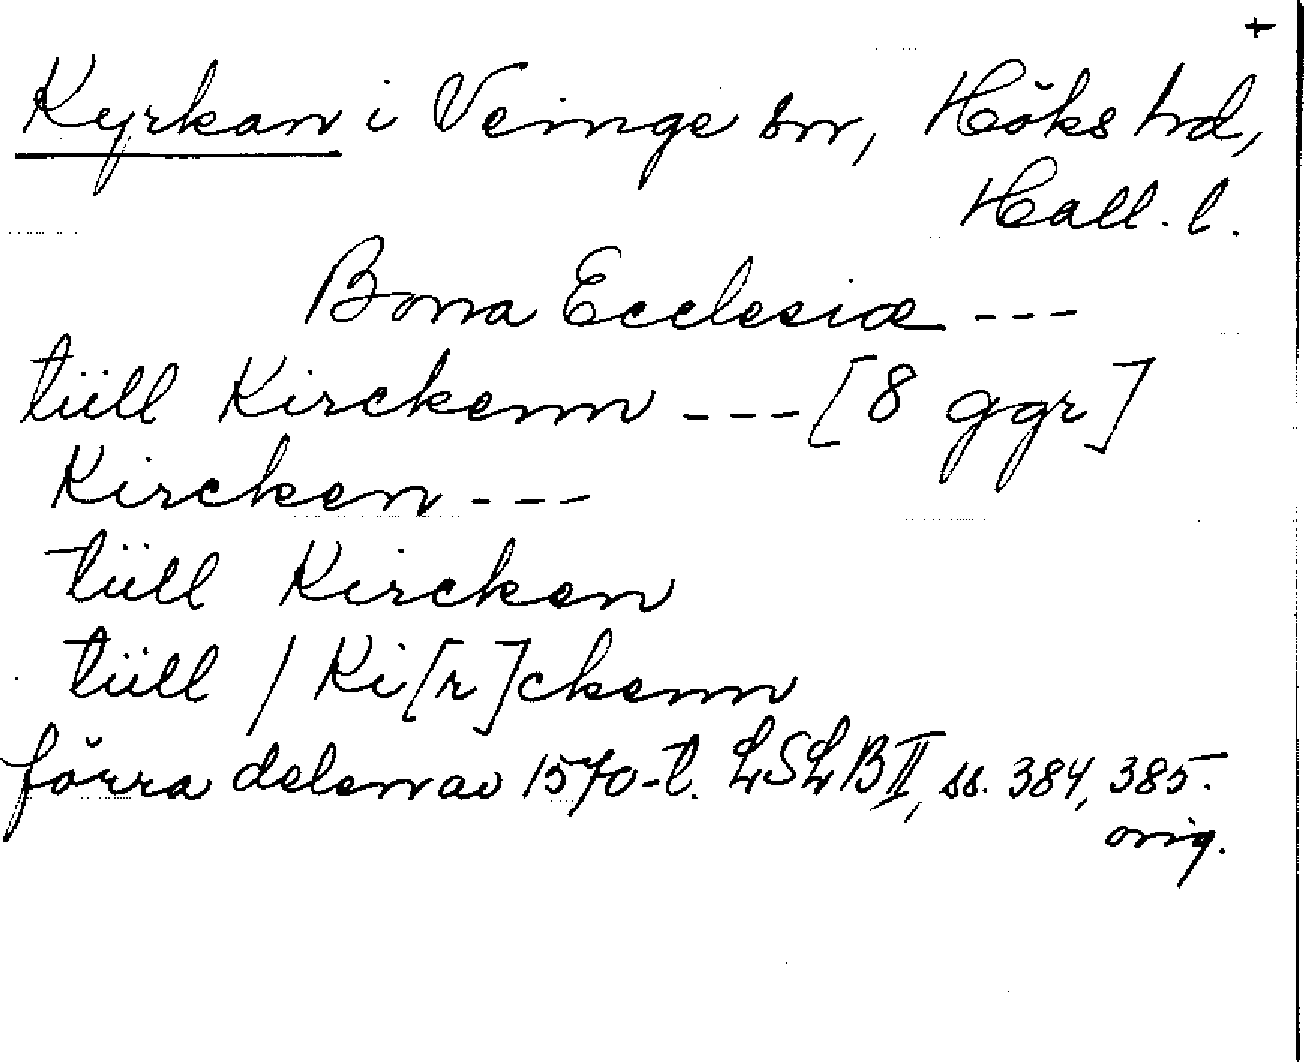 +
Kyrkan i Veinge sn, Höks hd,
Hall. l.
Bona Ecclesiæ ---
tiill Kirckenn --- [8 ggr]
Kircken ---
tiill Kircken
tiill / Ki[r]ckenn
förra delen av 1570-t. LSLB II, ss. 384, 385.
orig.